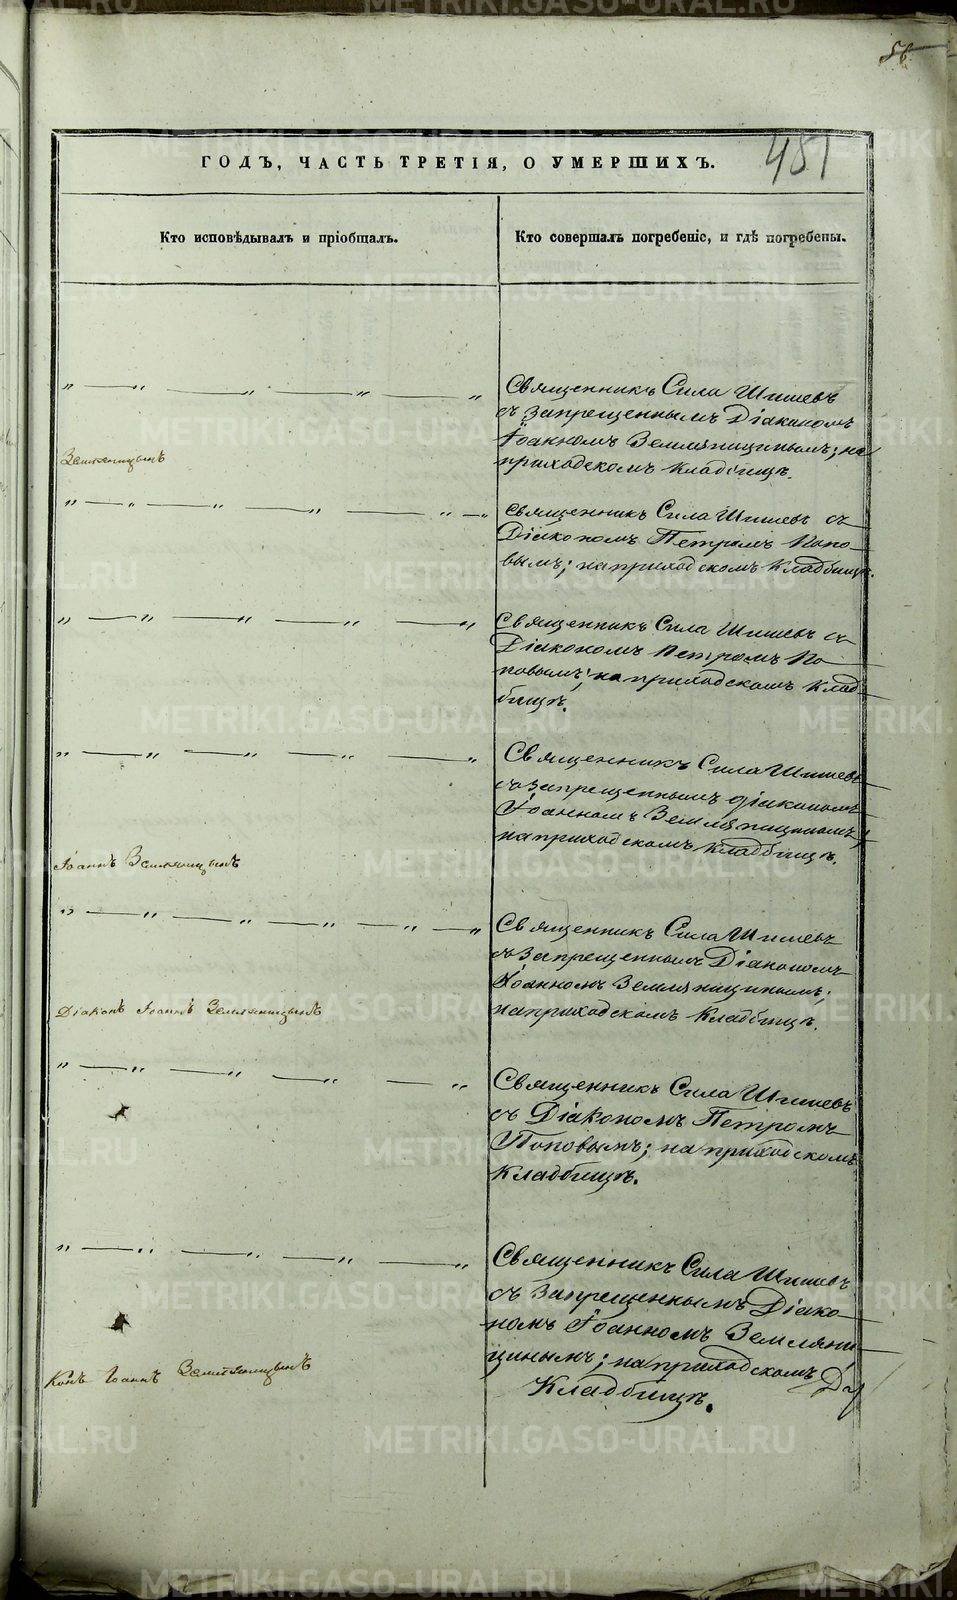 58
ГОДЪ, ЧАСТЬ ТРЕТІЯ, О УМЕРШИХЪ.
481
Кто исповѣдывалъ и пріобщалъ.
Кто совершалъ погребеніе, и гдѣ погребены.
Священникъ Сила Шишевъ
съ запрещеннымъ Діакономъ
Іоанномъ Земляницинымъ; на
приходскомъ кладбищѣ.
Земляницынъ
Священникъ Сила Шишевъ съ
Діакономъ Петромъ Попо-
вымъ; на приходскомъ кладбищѣ.
Священникъ Сила Шишевъ съ
Діакономъ Петромъ По-
повымъ; на приходскомъ клад-
бищѣ.
Священникъ Сила Шишевъ
съ запрещеннымъ діакономъ
Іоанномъ Земляницинымъ;
на приходскомъ кладбищѣ.
Іоаннъ Земляницынъ
Священникъ Сила Шишевъ
съ запрещеннымъ Діакономъ
Іоанномъ Земляницинымъ;
на приходскомъ кладбищѣ.
Діаконъ Іоаннъ Земляницынъ
Священникъ Сила Шишевъ
съ Діакономъ Петромъ
Поповымъ; на приходскомъ
кладбищѣ.
Священникъ Сила Шишевъ
съ запрещеннымъ Діако-
номъ Іоанномъ Земляни-
цинымъ; на приходскомъ
Кладбищѣ.
Іоаннъ Земляницынъ
METRIKI.GASO-URAL.RU